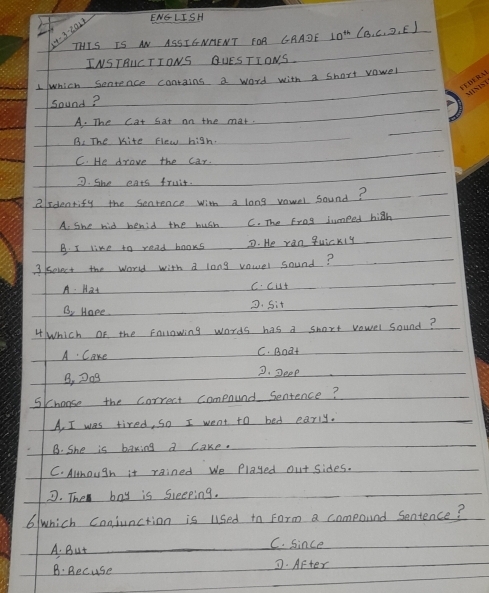 ENGLISH
THIS IS AN ASSIGNMENT FOR GRADE 10th (B.C.D.E)
INSTRUCTIONS QUESTIONS
1 Which Sentence contains a word with a short vowel
Sound?
A. The Cat Sat on the mat.
B. The Kite Flew high.
C. He drove the Car.
D. She eats fruit.
2 Identify the Sentence with a long vowel Sound?
A. She hid benid the bush C. The Frog Jumped high
B. I like to read books D. He ran quickly
3 Select the World with a long vowel Sound?
A. Hat C. Cut
B. Hope D. Sit
4 Which OF the Following words has a short vowel Sound?
A. Cake C. Boat
B. Dog D. Deep
5 Choose the Correct Compound Sentence?
A. I was tired, So I went to bed early.
B. She is baking a Cake.
C. Although it rained We Played out Sides.
D. The boy is Sleeping.
6 Which Conjunction is Used to Form a Compound Sentence?
A. But C. Since
B. Becuse D. After
FEDERAL
MINIST